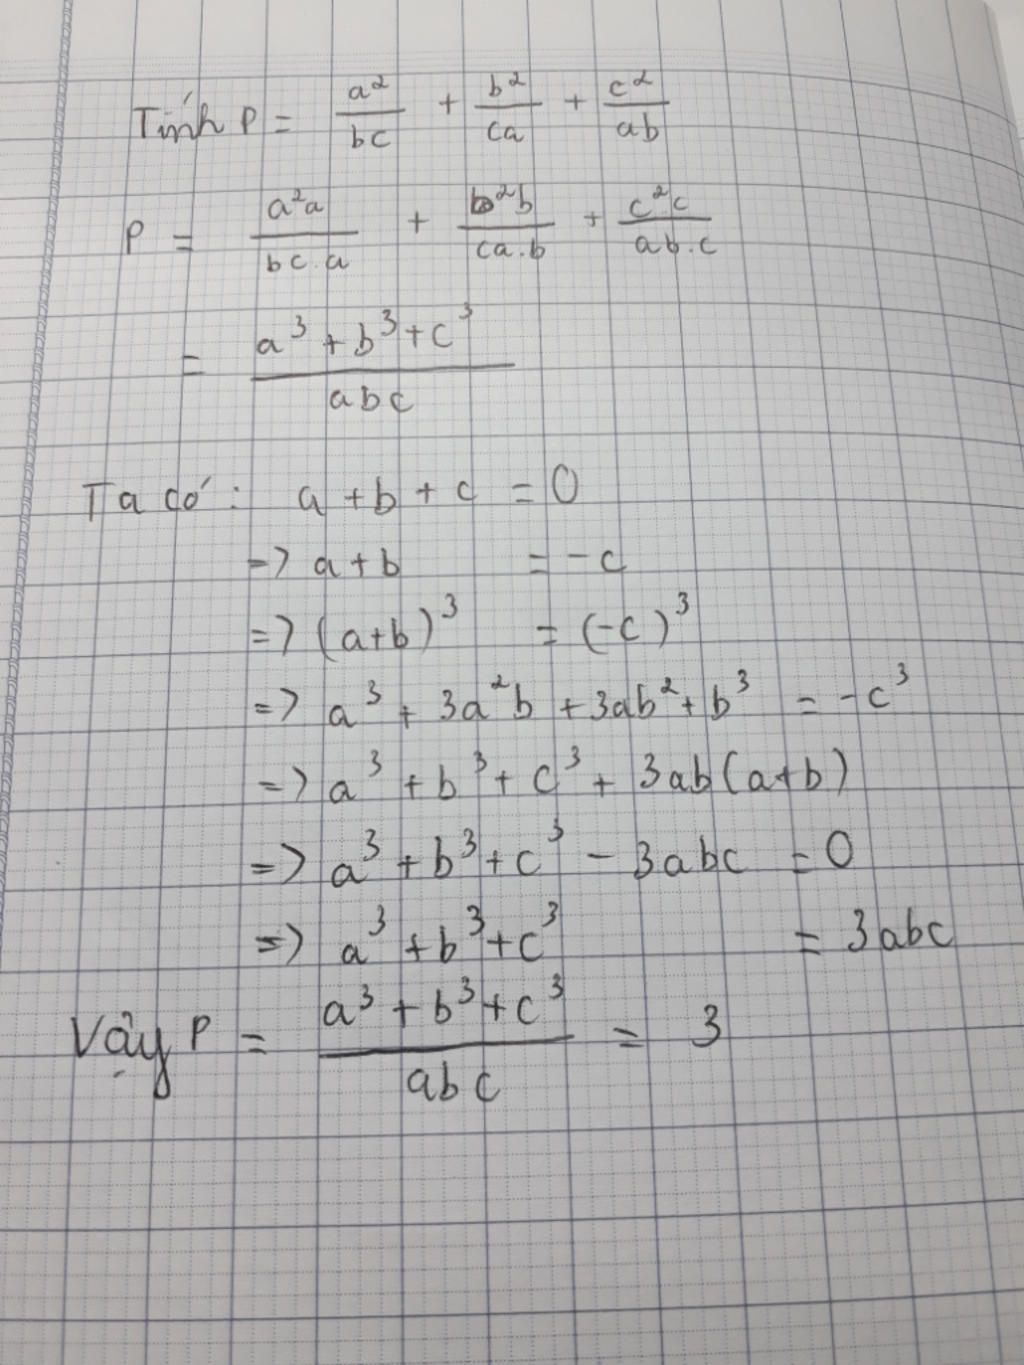 Tính P = a²/bc + b²/ca + c²/ab
P = a²a/bc.a + b²b/ca.b + c²c/ab.c
= a³ + b³ + c³/abc
Ta có: a + b + c = 0
=> a + b = -c
=> (a+b)³ = (-c)³
=> a³ + 3a²b + 3ab² + b³ = -c³
=> a³ + b³ + c³ + 3ab(a+b)
=> a³ + b³ + c³ - 3abc = 0
=> a³ + b³ + c³ = 3abc
Vậy P = a³ + b³ + c³/abc = 3